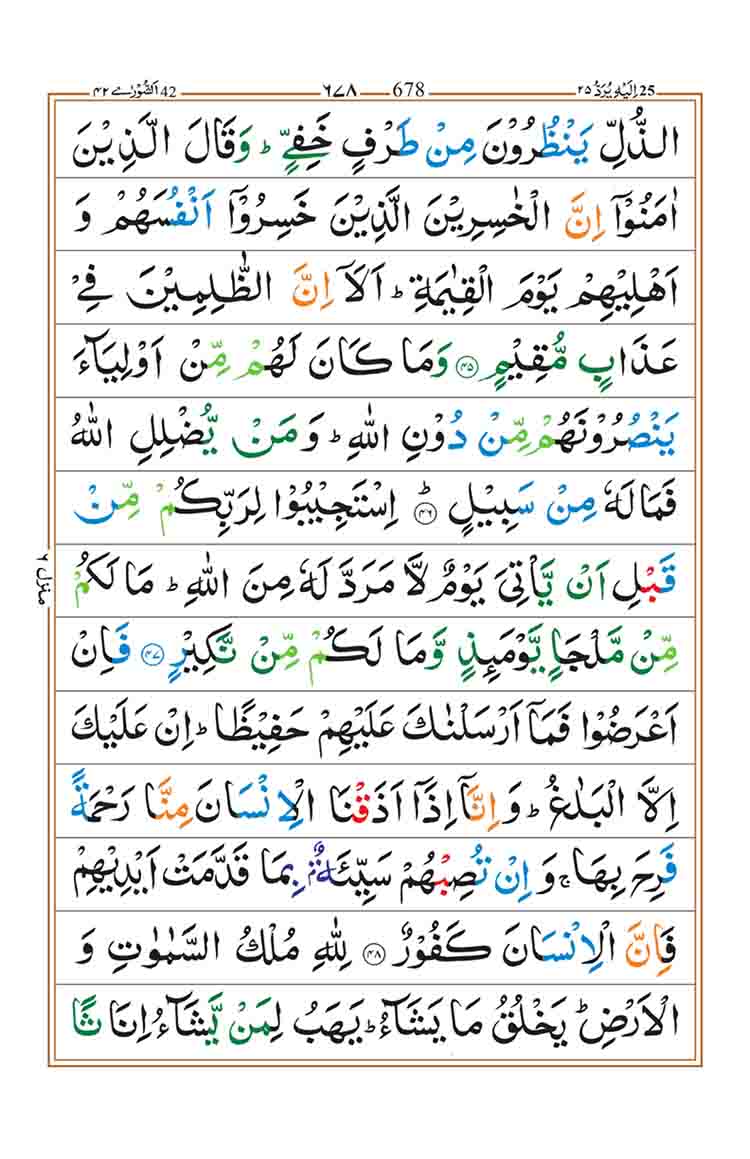 اَلشُّوْرٰی ٤٢ 42 ٦٧٨ 678 اِلَیْهِ یُرَدُّ ٢٥ 25
الذُّلِّ یَنْظُرُوْنَ مِنْ طَرْفٍ خَفِیٍّ ؕ وَقَالَ الَّذِیْنَ
اٰمَنُوْۤا اِنَّ الْخٰسِرِیْنَ الَّذِیْنَ خَسِرُوْۤا اَنْفُسَهُمْ وَ
اَهْلِیْهِمْ یَوْمَ الْقِیٰمَةِ ؕ اَلَاۤ اِنَّ الظّٰلِمِیْنَ فِیْ
عَذَابٍ مُّقِیْمٍ ۝٤٥ وَمَا كَانَ لَهُمْ مِّنْ اَوْلِیَآءَ
یَنْصُرُوْنَهُمْ مِّنْ دُوْنِ اللّٰهِ ؕ وَمَنْ یُّضْلِلِ اللّٰهُ
فَمَا لَهٗ مِنْ سَبِیْلٍ ۝٤٦ؕ اِسْتَجِیْبُوْا لِرَبِّكُمْ مِّنْ
قَبْلِ اَنْ یَّاْتِیَ یَوْمٌ لَّا مَرَدَّ لَهٗ مِنَ اللّٰهِ ؕ مَا لَكُمْ
مِّنْ مَّلْجَاٍ یَّوْمَىِٕذٍ وَّمَا لَكُمْ مِّنْ نَّكِیْرٍ ۝٤٧ فَاِنْ
اَعْرَضُوْا فَمَاۤ اَرْسَلْنٰكَ عَلَیْهِمْ حَفِیْظًا ؕ اِنْ عَلَیْكَ
اِلَّا الْبَلٰغُ ؕ وَاِنَّاۤ اِذَاۤ اَذَقْنَا الْاِنْسَانَ مِنَّا رَحْمَةً
فَرِحَ بِهَا ۚ وَاِنْ تُصِبْهُمْ سَیِّئَةٌۢ بِمَا قَدَّمَتْ اَیْدِیْهِمْ
فَاِنَّ الْاِنْسَانَ كَفُوْرٌ ۝٤٨ لِلّٰهِ مُلْكُ السَّمٰوٰتِ وَ
الْاَرْضِ ؕ یَخْلُقُ مَا یَشَآءُ ؕ یَهَبُ لِمَنْ یَّشَآءُ اِنَاثًا
منزل ٦